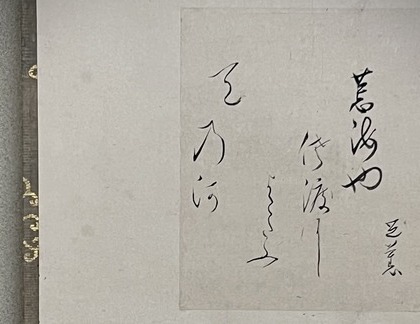 芭蕉
荒海也
佐渡に
よこたふ
天乃河